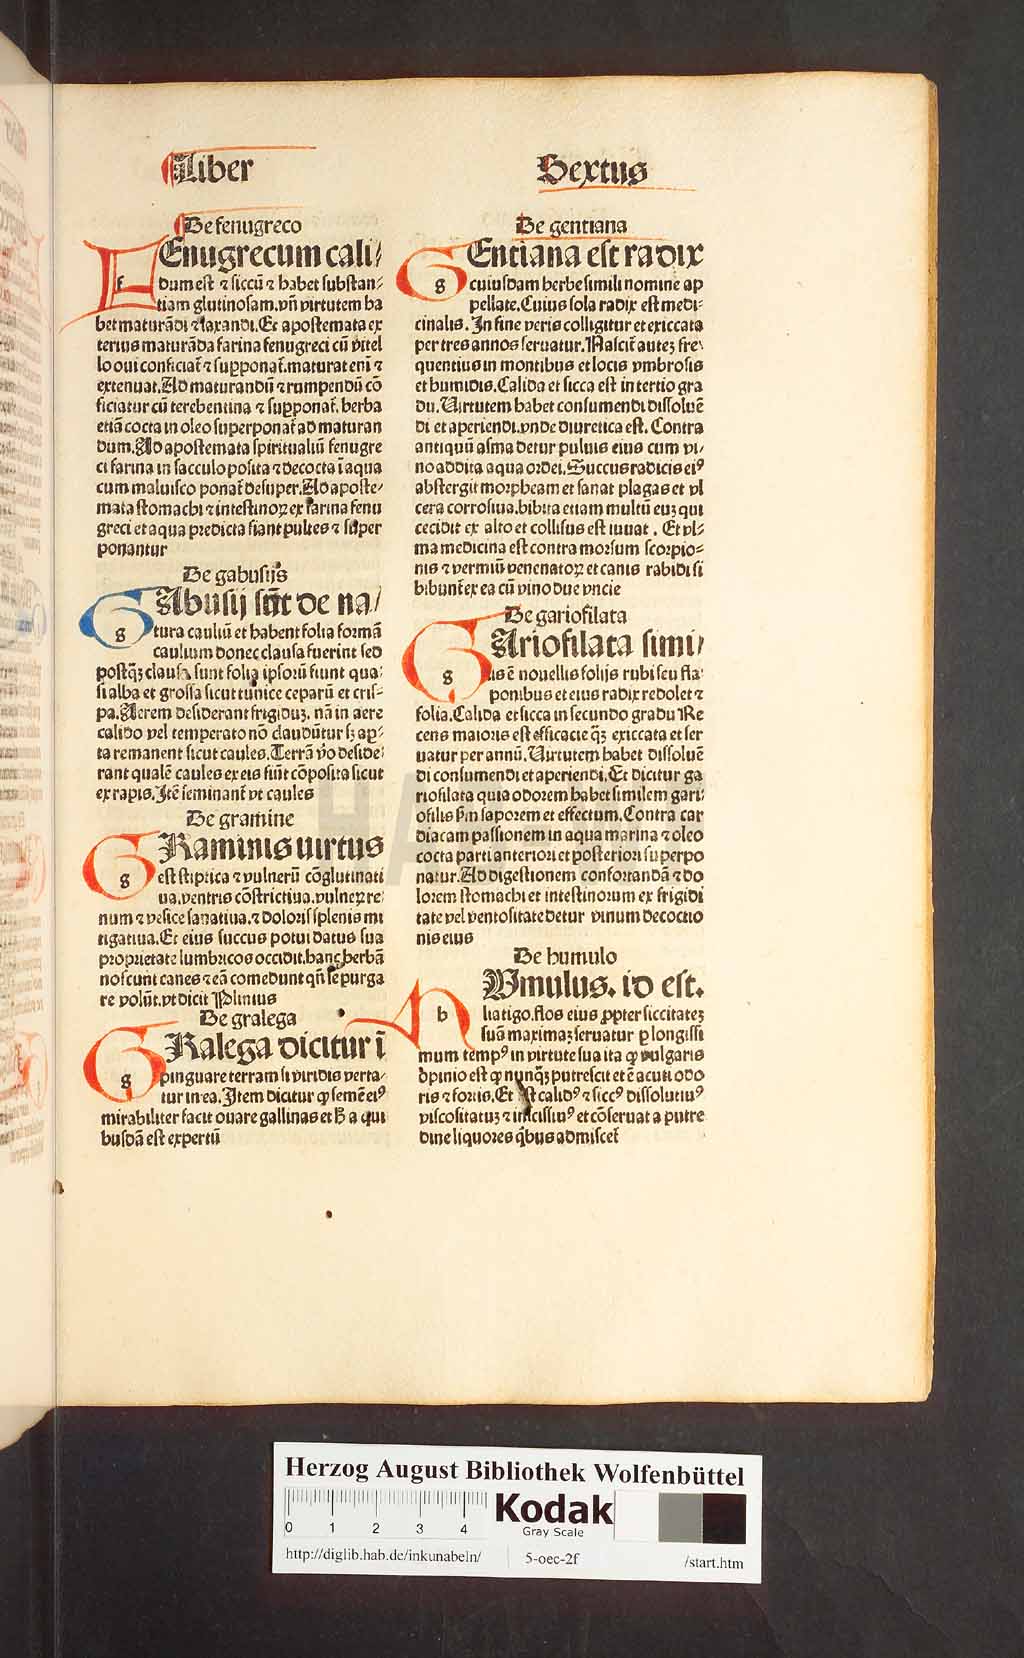 Liber
Sextus
De fenugreco
Fenugrecum cali/
dum est ⁊ siccū ⁊ habet substan-
tiam glutinosam. vn̄ virtutem ha
bet maturādi ⁊ laxandi. Et apostemata ex
terius maturāda farina fenugreci cū vitel
lo oui conficiat᷑ ⁊ supponat᷑. maturat eni᷑ ⁊
extenuat. Ad maturandū ⁊ rumpendū cō
ficiatur cū terebentina ⁊ supponat᷑. herba
etiā cocta in oleo superponat᷑ ad maturan
dum. Ad apostemata spiritualiū fenugre
ci farina in sacculo posita ⁊ decocta ī aqua
cum maluisco ponat᷑ desuper. Ad aposte/
mata stomachi ⁊ intestinoꝝ ex farina fenu
greci et aqua predicta fiant pultes ⁊ super
ponantur
De gabusijs
Gabusij sūt de na/
tura cauliū et habent folia formā
caulium donec clausa fuerint sed
postqȝ clausa sunt folia ipsorū fiunt qua
si alba et grossa sicut tunice ceparū et cris-
pa. Aerem desiderant frigiduȝ. nā in aere
calido vel temperato nō claudūtur sȝ ap-
ta remanent sicut caules. Terrā v̄o deside
rant qualē caules ex eis fiūt cōposita sicut
ex rapis. Itē seminant᷑ vt caules
De gramine
Graminis uirtus
est stiptica ⁊ vulnerū cōglutinati
ua. ventris cōstrictiua. vulneꝝ re
num ⁊ vesice sanatiua. ⁊ doloris splenis mi
tigatiua. Et eius succus potui datus sua
proprietate lumbricos occidit. hanc herbā
noscunt canes ⁊ eā comedunt qn̄ se purga
re volūt. vt dicit Plinius
De gralega
Gralega dicitur ī
pinguare terram si viridis verta/
tur in ea. Item dicitur ꝙ semē eiꝰ
mirabiliter facit ouare gallinas et h̄ a qui
busdā est expertū
De gentiana
Gentiana est radix
cuiusdam herbe simili nomine ap
pellate. Cuius sola radix est medi-
cinalis. In fine veris colligitur et exiccata
per tres annos seruatur. Nascit᷑ auteȝ fre
quentius in montibus et locis vmbrosis
et humidis. Calida et sicca est in tertio gra
du. Virtutem habet consumendi dissoluē
di et aperiendi. vnde diuretica est. Contra
antiquū asma detur puluis eius cum vi/
no addita aqua ordei. Succus radicis eiꝰ
abstergit morpheam et sanat plagas et vl
cera corrosiua. bibita etiam multū euȝ qui
cecidit ex alto et collisus est iuuat. Et vl-
ma medicina est contra morsum scorpio-
nis ⁊ vermiū venenatoꝝ et canis rabidi si
bibunt᷑ ex ea cū vino due vncie
De gariofilata
Gariofilata simi/
lis ē nouellis folijs rubi seu fla
ponibus et eius radix redolet ⁊
folia. Calida et sicca in secundo gradu Re
cens maioris est efficacie qȝ exiccata et ser
uatur per annū. Virtutem habet dissoluē
di consumendi et aperiendi. Et dicitur ga
riofilata quia odorem habet similem gari
ofilis ẜm saporem et effectum. Contra car
diacam passionem in aqua marina ⁊ oleo
cocta parti anteriori et posteriori superpo
natur. Ad digestionem confortandā ⁊ do
lorem stomachi et intestinorum ex frigidi
tate vel ventositate detur vinum decoctio
nis eius
De humulo
hVmulus. id est.
liatigo. flos eius ꝓpter siccitateȝ
suā maximaȝ seruatur ꝑ longissi
mum tempꝰ in virtute sua ita ꝙ vulgaris
opinio est ꝙ nunqȝ putrescit et ē acuti odo
ris ⁊ fortis. Et est calidꝰ ⁊ siccꝰ dissolutiuꝰ
viscositatuȝ ⁊ incissiuꝰ et cōseruat a putre
dine liquores qͥbus admiscet᷑
Herzog August Bibliothek Wolfenbüttel
0 1 2 3 4
Kodak
Gray Scale
http://diglib.hab.de/inkunabeln/ 5-oec-2f /start.htm